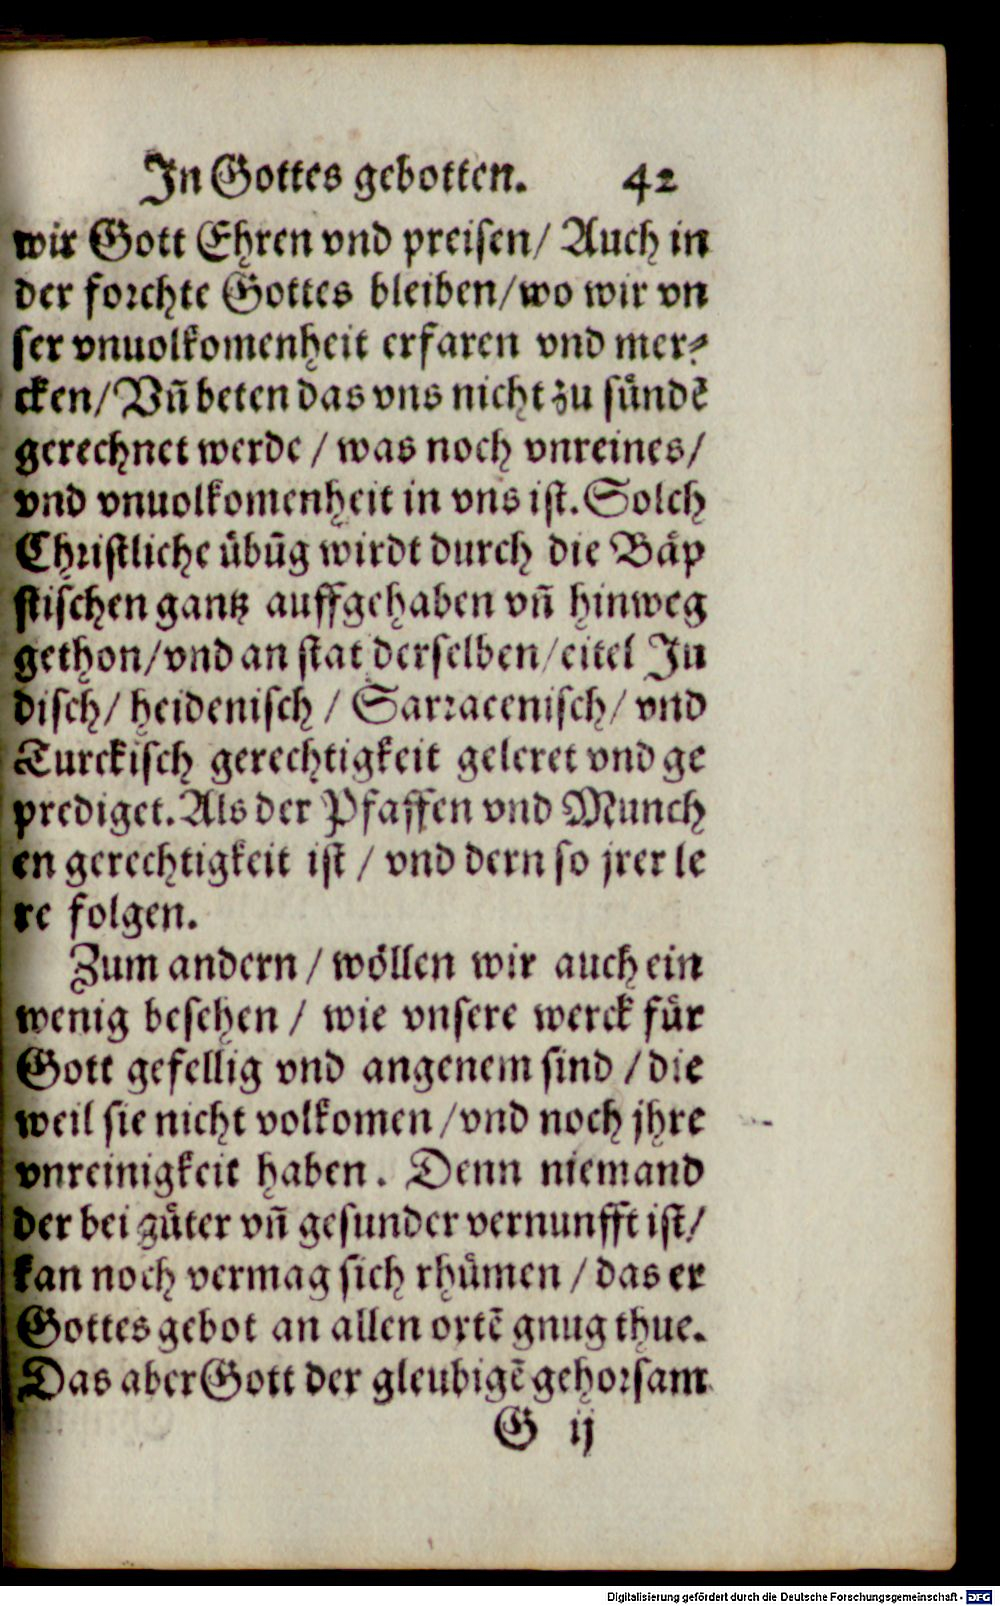 In Gottes gebotten. 42
wir Gott Ehren vnd preisen/ Auch in
der forchte Gottes bleiben/wo wir vn
ser vnuolkomenheit erfaren vnd mer⸗
cken/ Vñ beten das vns nicht zu sündẽ
gerechnet werde / was noch vnreines/
vnd vnuolkomenheit in vns ist. Solch
Christliche übũg wirdt durch die Bäp
stischen gantz auffgehaben vñ hinweg
gethon/vnd an stat derselben/eitel Jü
disch/ heidenisch / Sarracenisch/ vnd
Turckisch gerechtigkeit geleret vnd ge
prediget. Als der Pfaffen vnd Munch
en gerechtigkeit ist / vnd dern so jrer le
re folgen.
Zum andern / wöllen wir auch ein
wenig besehen / wie vnsere werck für
Gott gefellig vnd angenem sind / die
weil sie nicht volkomen /vnd noch jhre
vnreinigkeit haben. Denn niemand
der bei gůter vñ gesunder vernunfft ist/
kan noch vermag sich rhümen / das er
Gottes gebot an allen ortẽ gnug thue.
Das aber Gott der gleubigẽ gehorsam
G ij
Digitalisierung gefördert durch die Deutsche Forschungsgemeinschaft - DFG